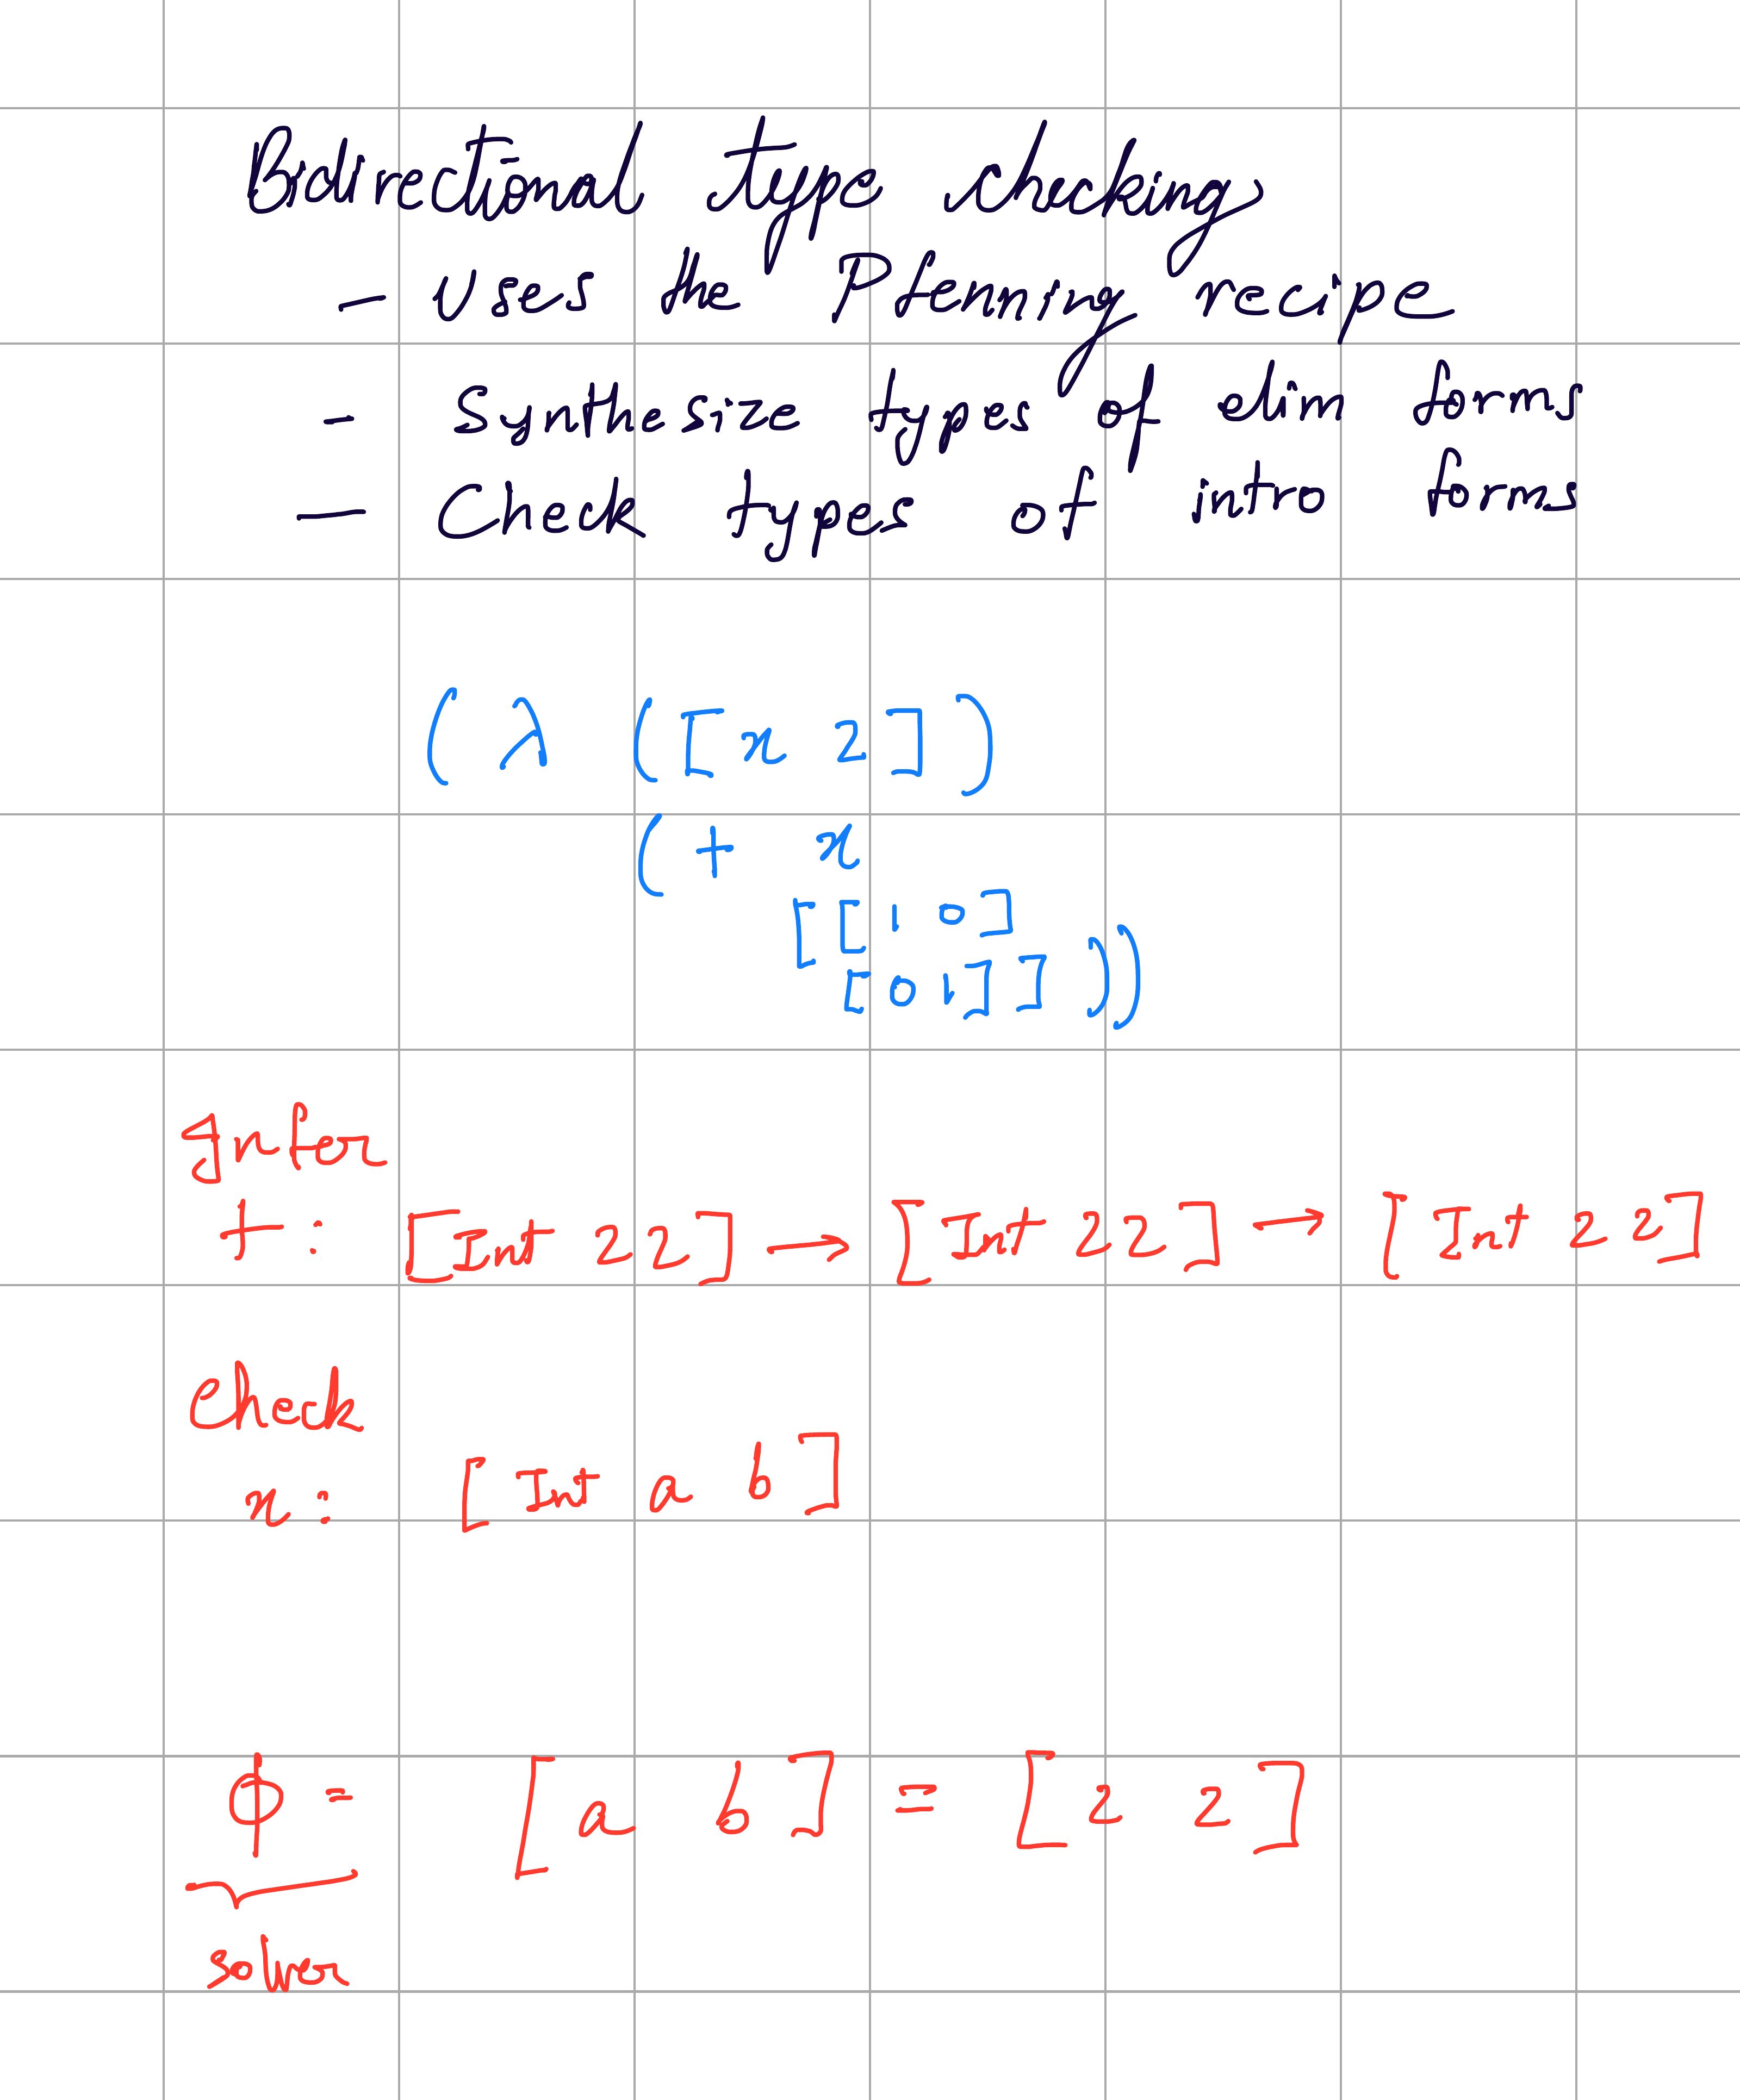 Bidirectional type checking
- Uses the Pfenning recipe
- Synthesize types of elim forms
- Check types of intro forms
(λ ([x 2])
(+ x
[[1 0]
[0 1]]))
Infer
+: [Int 2 2] → [Int 2 2] → [Int 2 2]
Check
x: [Int a b]
ϕ = [a b] = [2 2]
solver